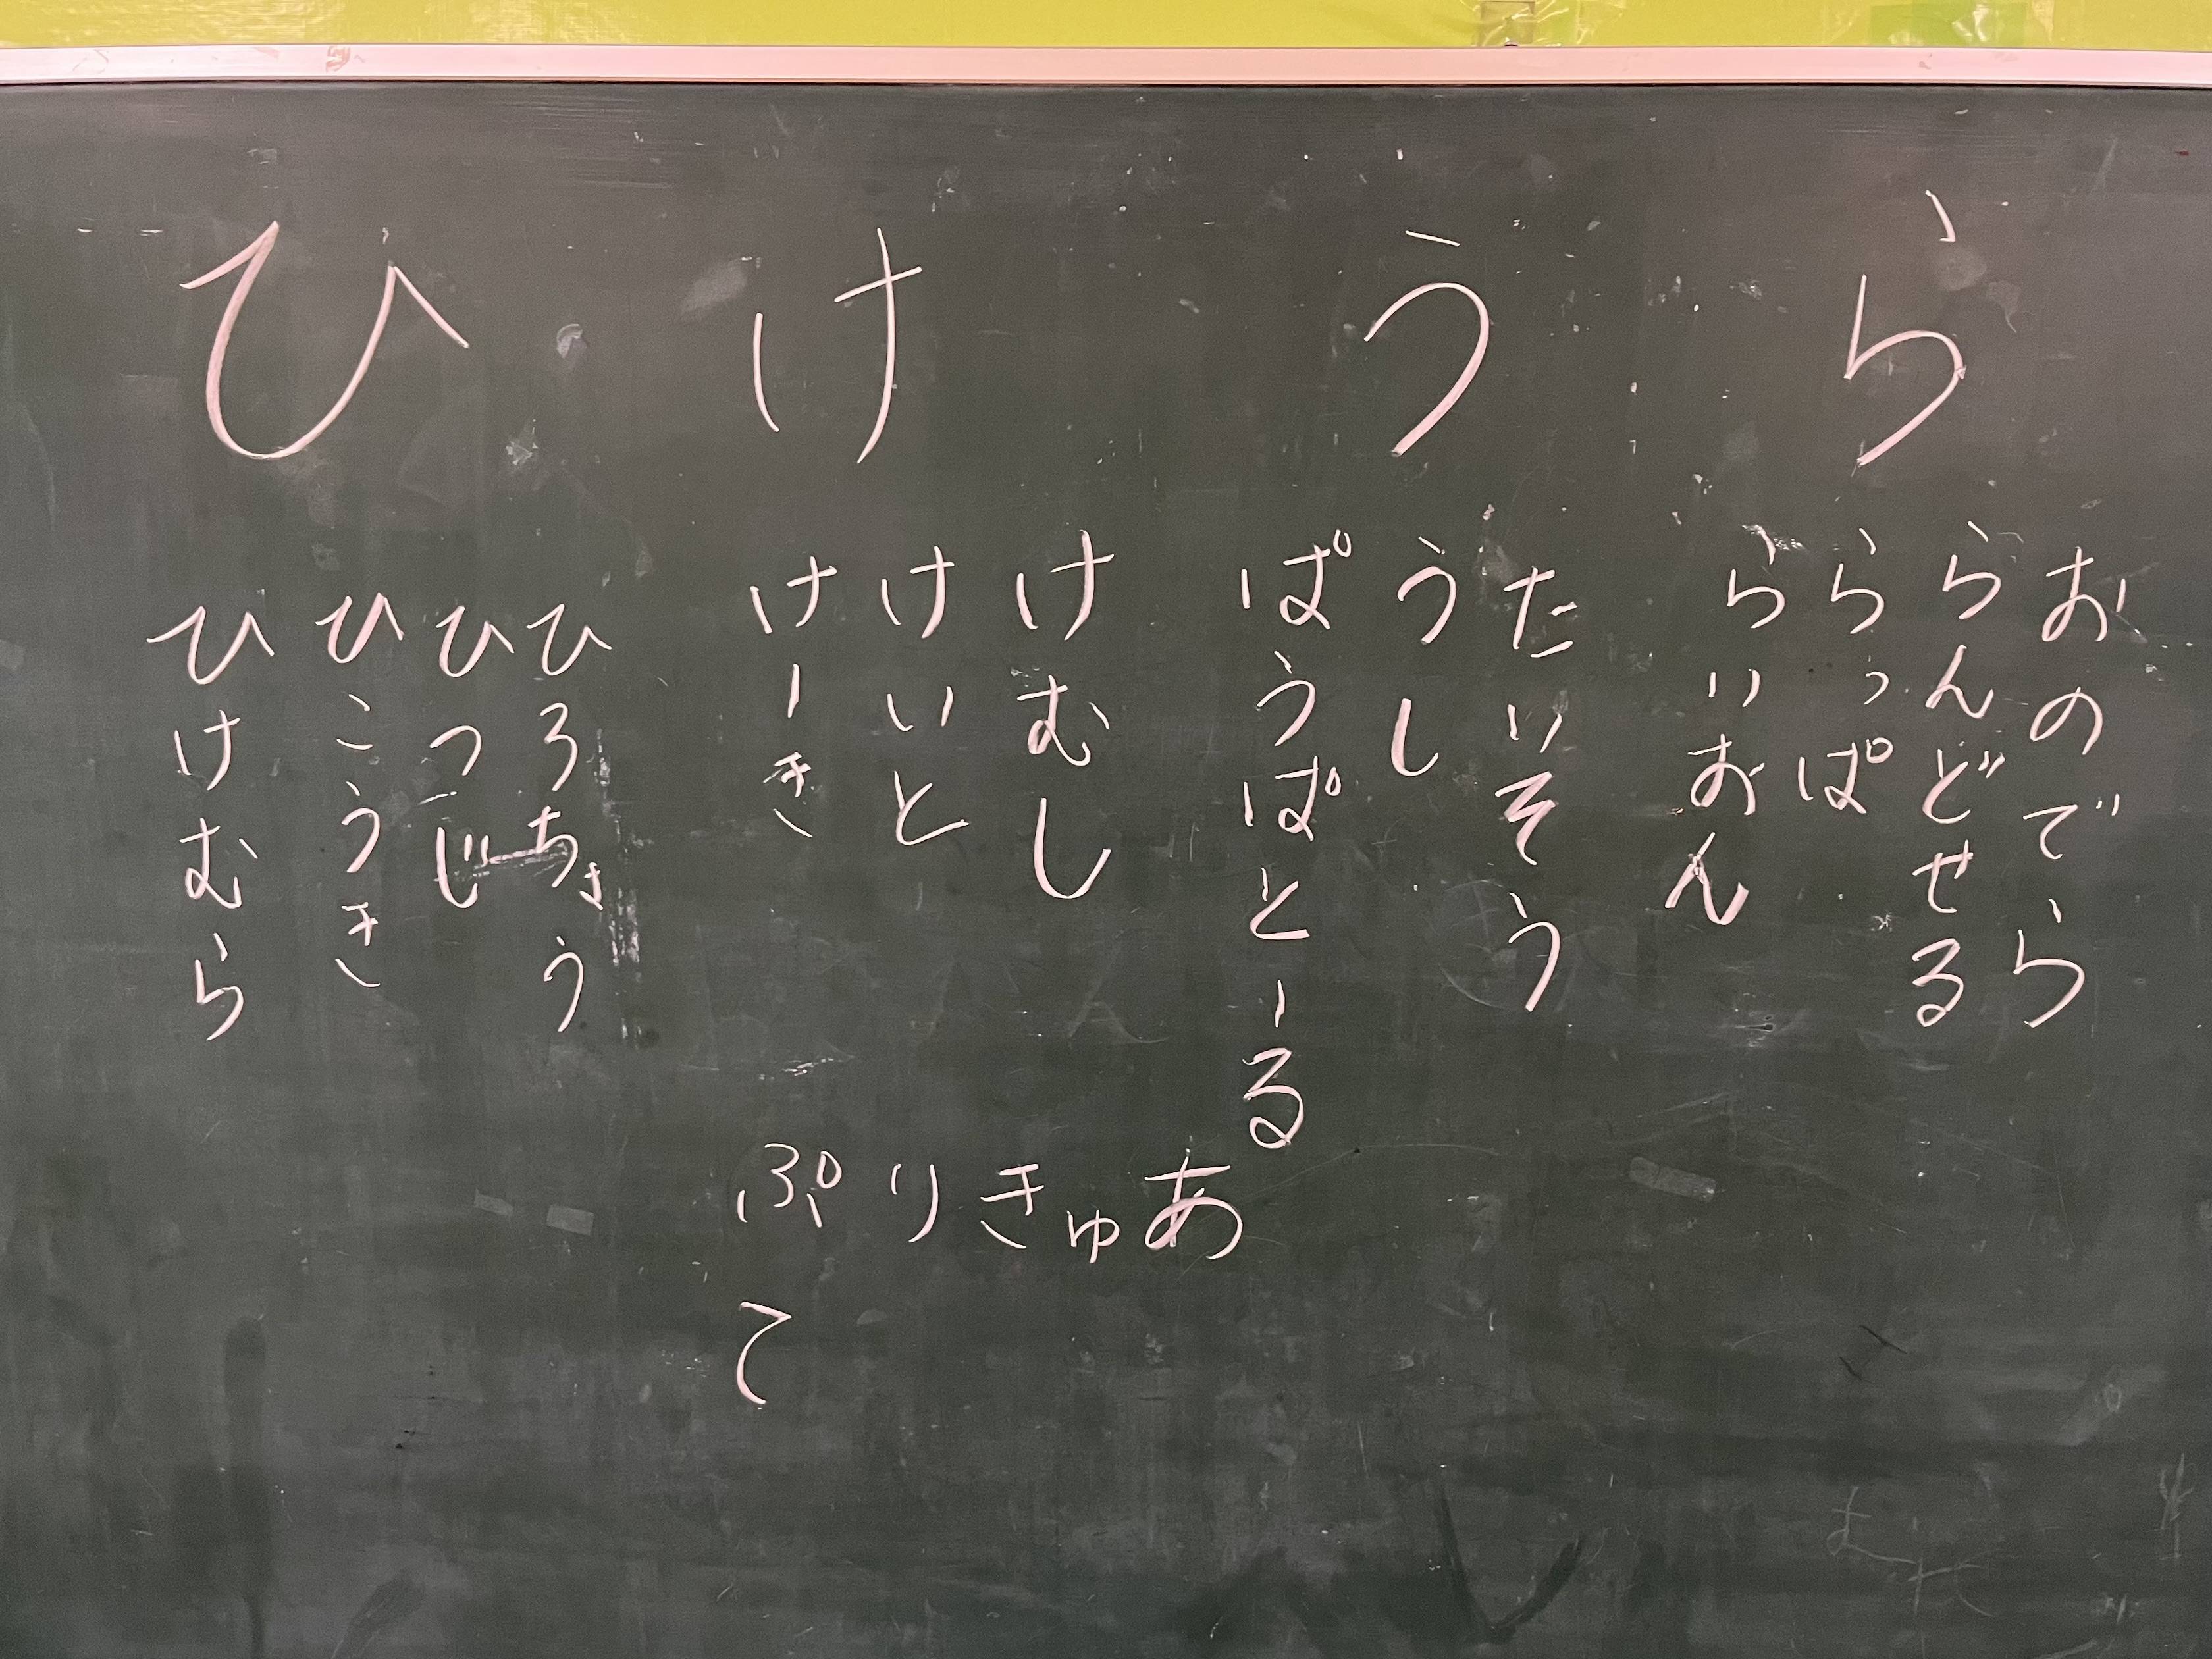 ら
おのでら
らんどせる
らっぱ
らいおん
う
たいそう
うし
ぱうぱとーる
け
けむし
けいと
けーき
ひ
ひろちょう
ひつじ
ひこうき
ひけむら
ぷりきゅあ
て